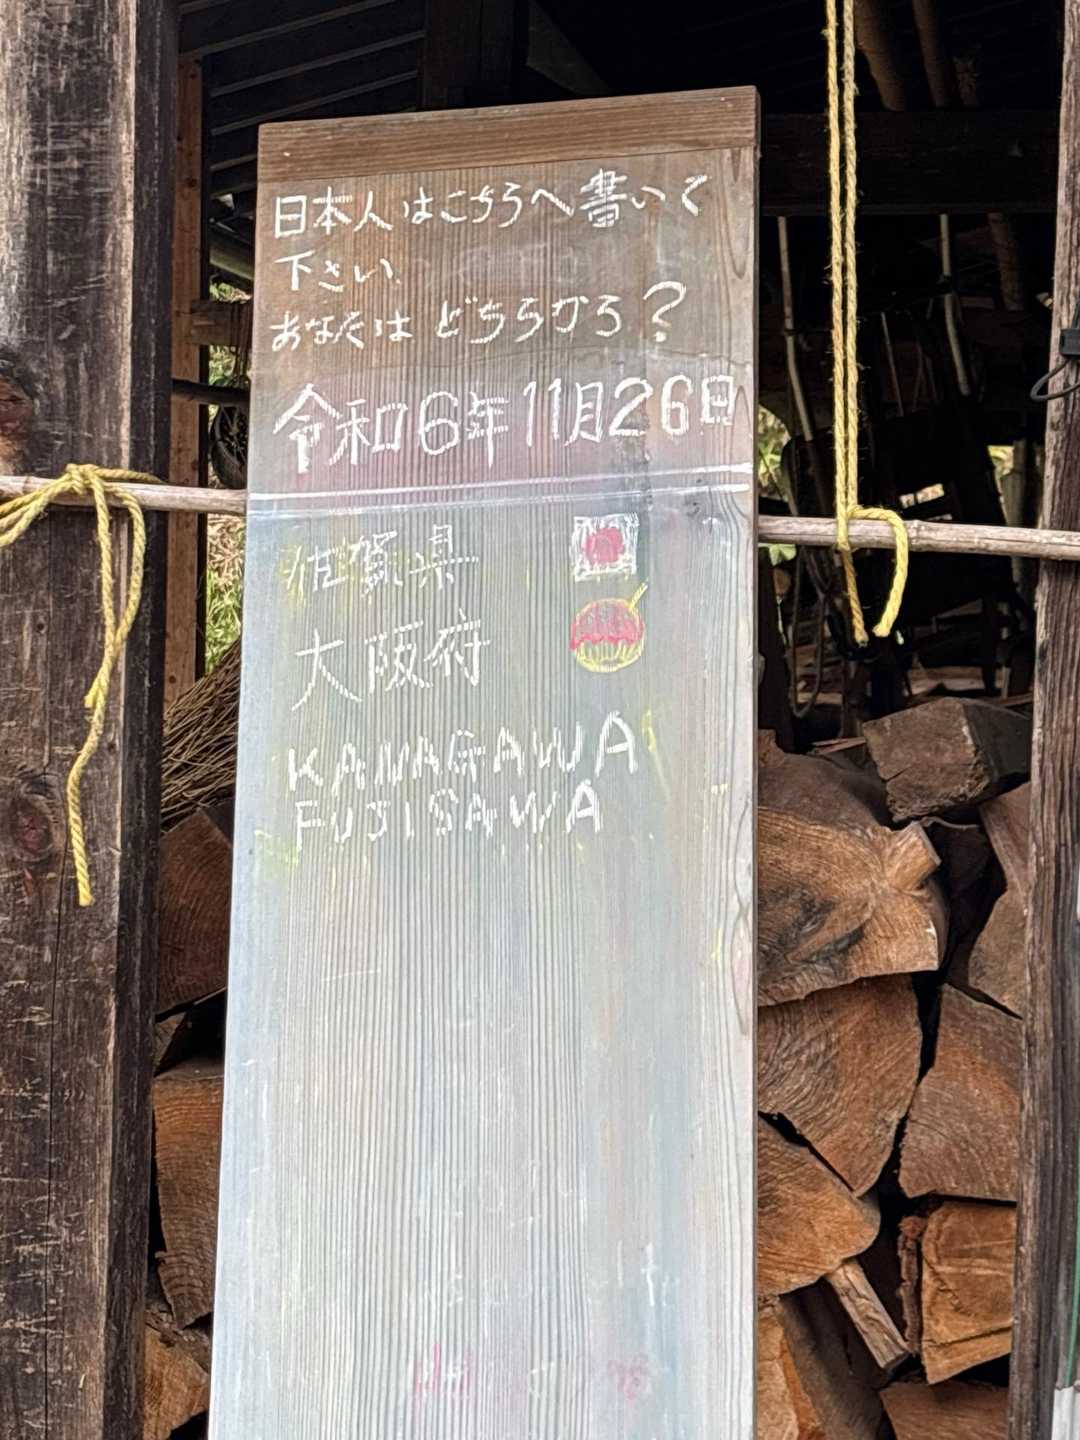 日本人はこちらへ書いて
下さい、
あなたは どちらから？
令和6年11月26日
佐賀県
大阪府
KANAGAWA
FUJISAWA